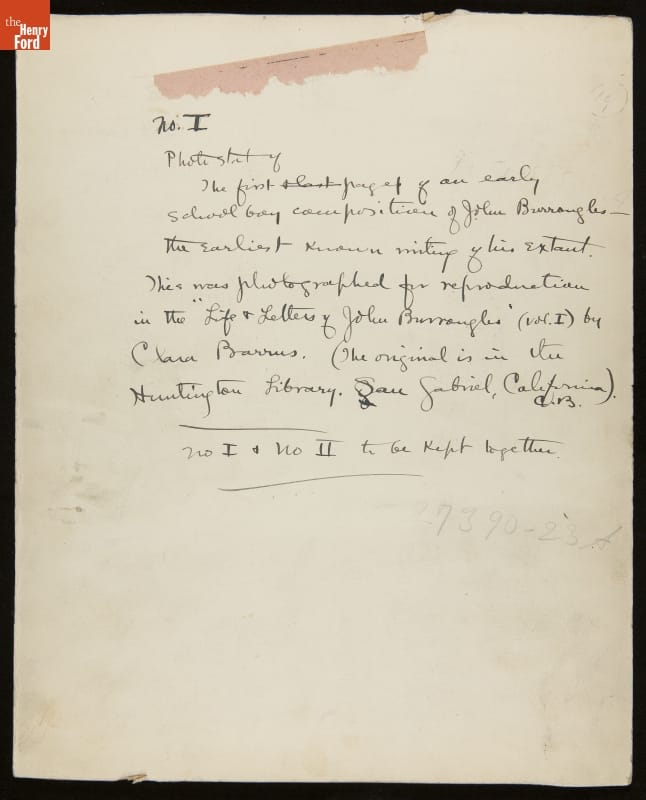 the
Henry
Ford
No. I
Photostat of
The first & last page of of an early
school boy composition of John Burroughs—
the earliest known writing of his extant.
This was photographed for reproduction
in the "Life & Letters of John Burroughs" (vol. I) by
Clara Barrus. (The original is in the
Huntington Library. San Gabriel, California).
C.B.
No I & No II to be kept together.
27390-23